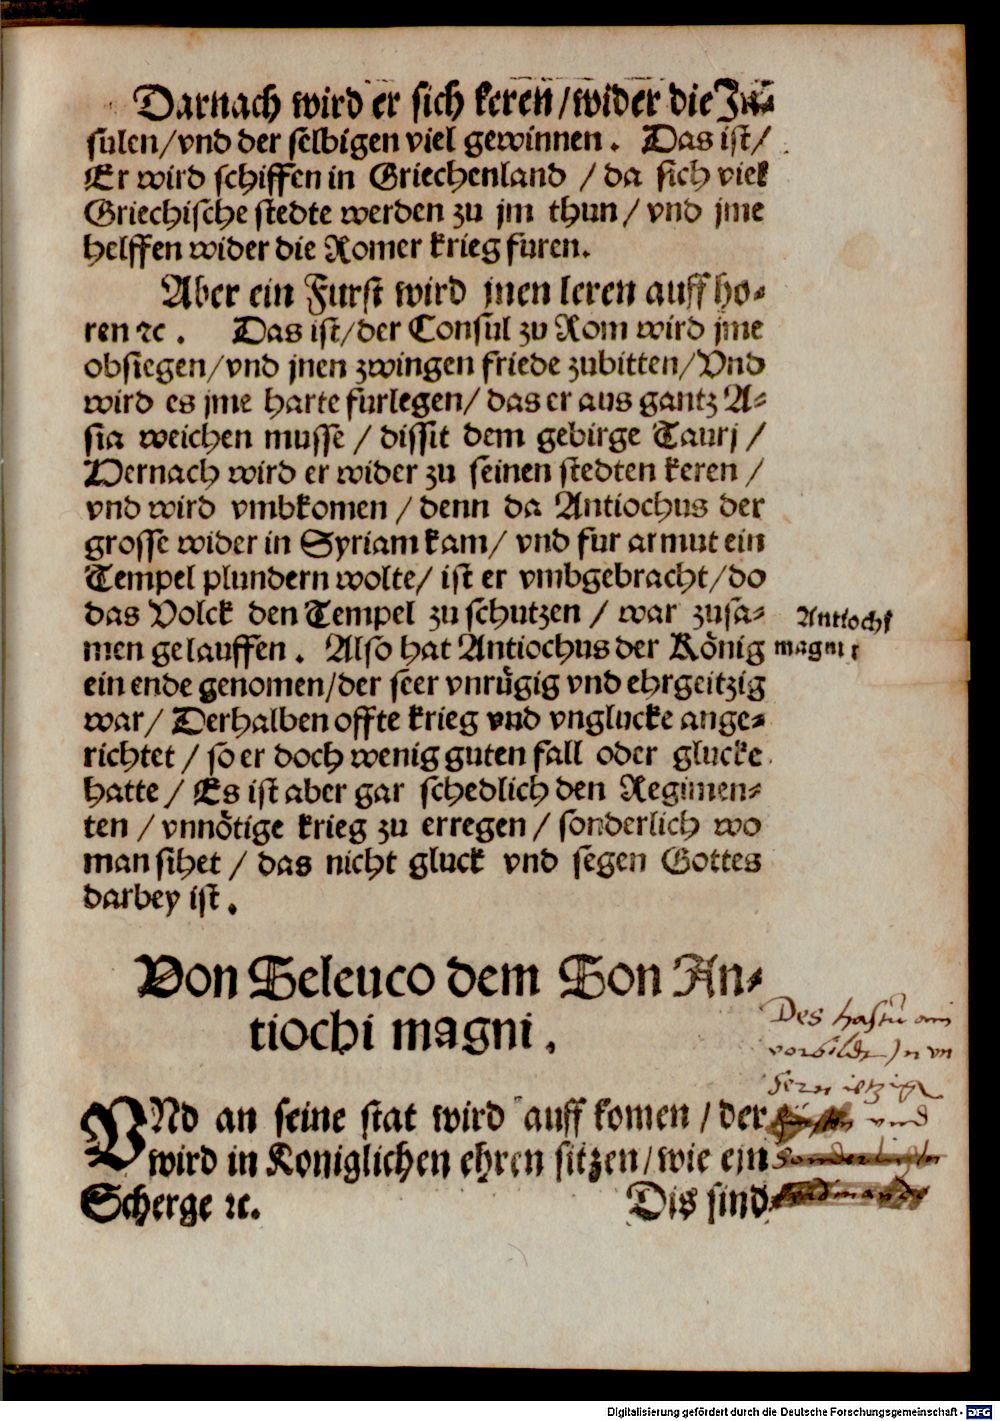 Darnach wird er sich keren/wider die In⸗
sulen/vnd der selbigen viel gewinnen. Das ist/
Er wird schiffen in Griechenland / da sich viel
Griechische stedte werden zu jm thun/ vnd jme
helffen wider die Romer krieg furen.
Aber ein Furst wird jnen leren auff ho⸗
ren ꝛc. Das ist/der Consul zu Rom wird jme
obsiegen/vnd jnen zwingen friede zubitten/Vnd
wird es jme harte furlegen/ das er aus gantz A⸗
sia weichen musse / dissit dem gebirge Taurj /
Dernach wird er wider zu seinen stedten keren /
vnd wird vmbkomen / denn da Antiochus der
grosse wider in Syriam kam/ vnd fur armut ein
Tempel plundern wolte/ ist er vmbgebracht/do
das Volck den Tempel zu schutzen / war zusa⸗
men gelauffen. Also hat Antiochus der König
Antiochi
magni
ein ende genomen/der seer vnrügig vnd ehrgeitzig
war/ Derhalben offte krieg vnd vnglucke ange⸗
richtet / so er doch wenig guten fall oder glucke
hatte / Es ist aber gar schedlich den Regimen⸗
ten / vnnötige krieg zu erregen / sonderlich wo
man sihet / das nicht gluck vnd segen Gottes
darbey ist.
Von Seleuco dem Son An⸗
tiochi magni.
VNd an seine stat wird auff komen / der
wird in Koniglichen ehren sitzen/wie ein
Scherge ꝛc. Dis sind
Des hastu ain
vorbildt In vn
sern ietzig
vnd
Digitalisierung gefördert durch die Deutsche Forschungsgemeinschaft - DFG